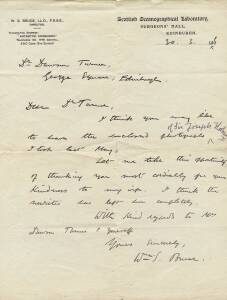 W. S. BRUCE, LL.D., F.R.S.E.,
DIRECTOR.
Scottish Oceanographical Laboratory,
SURGEONS' HALL,
EDINBURGH.
30. 5. 190
Dr Dawson Turner,
George Square, Edinburgh.
Dear Dr Turner,
I think you may like
of Sir Joseph Hooker
to have the enclosed photograph
I took last May,
Let me take this opportunity
of thanking you most cordially for your
kindness to my wife. I think the
has left her completely.
With kind regards to Mrs
Dawson Turner & yourself
Yours sincerely,
Wm S. Bruce.